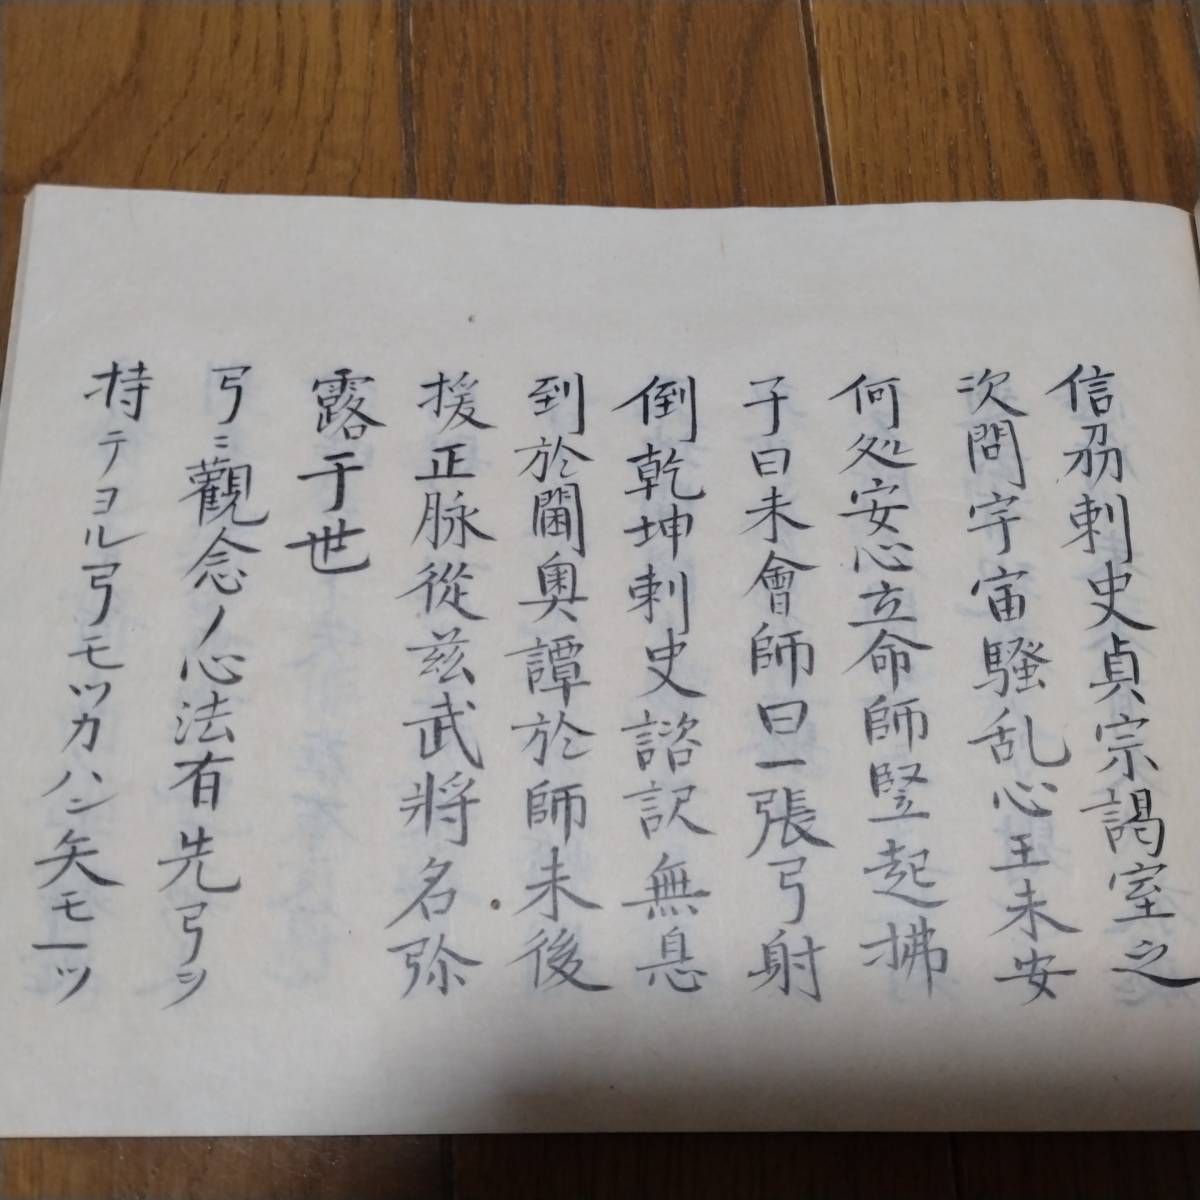 信刕刺史貞宗謁室之
次問宇宙騒乱心王未安
何処安心立命師竪起拂
子曰未會師曰一張弓射
倒乾坤刺史諮訳無息
到於閫奥譚於師末後
援正脉從茲武將名弥
露于世
弓ニ觀念ノ心法有先弓ヲ
持テヨル弓モツカハシ矢モ一ツ